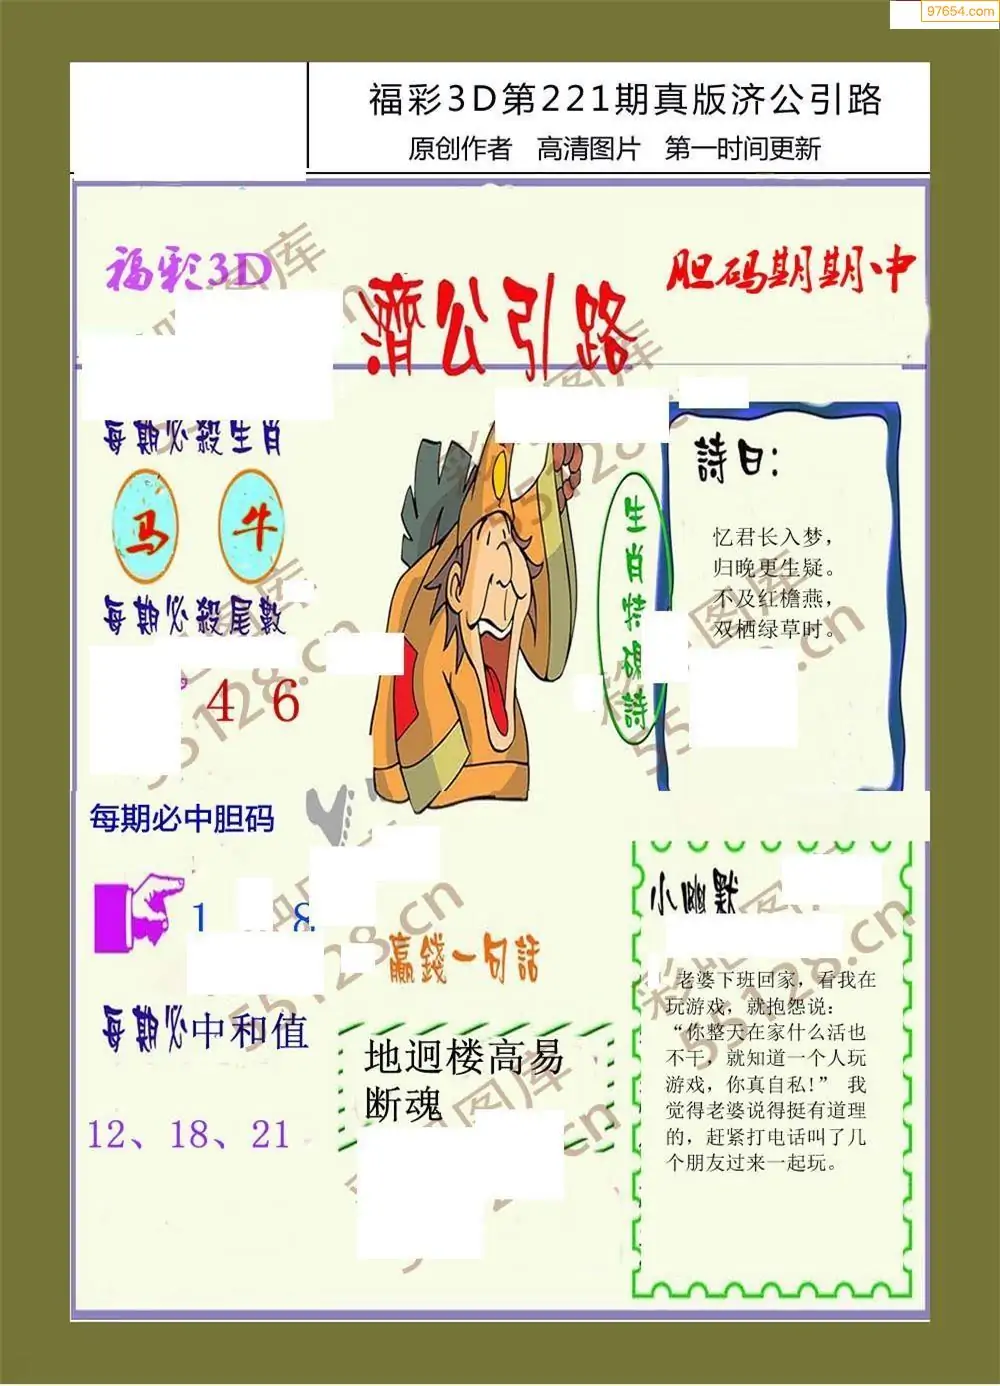 97654.com
福彩3D第221期真版济公引路
原创作者 高清图片 第一时间更新
福彩3D
胆码期期中
濟公引路
每期必殺生肖
马 牛
每期必殺尾數
4 6
生肖特碼詩
詩曰:
忆君长入梦，
归晚更生疑。
不及红檐燕，
双栖绿草时。
每期必中胆码
1 8
每期必中和值
12、18、21
赢錢一句話
地迥楼高易
断魂
小幽默
老婆下班回家，看我在
玩游戏，就抱怨说：
“你整天在家什么活也
不干，就知道一个人玩
游戏，你真自私!” 我
觉得老婆说得挺有道理
的，赶紧打电话叫了几
个朋友过来一起玩。
55128.cn